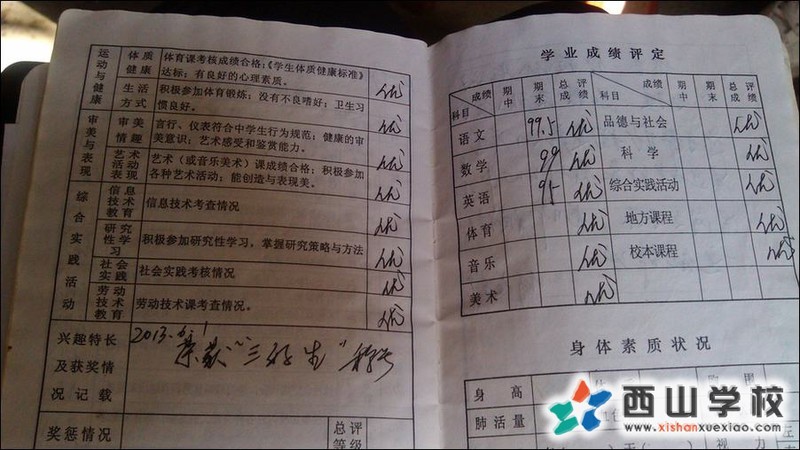 运动与健康
体质健康
体育课考核成绩合格;《学生体质健康标准》
达标;有良好的心理素质。
优
生活方式
积极参加体育锻炼;没有不良嗜好;卫生习
惯良好。
优
审美与表现
审美情趣
言行、仪表符合中学生行为规范;健康的审
美意识;艺术感受和鉴赏能力。
优
艺术活动表现
艺术(或音乐美术)课成绩合格;积极参加
各种艺术活动;能创造与表现美。
优
综合实践活动
信息技术教育
信息技术考查情况
优
研究性学习
积极参加研究性学习,掌握研究策略与方法
优
社会实践
社会实践考核情况
优
劳动技术教育
劳动技术课考查情况。
优
兴趣特长
及获奖情
况记载
2013.6.1
荣获“三好生”称号
奖惩情况
总评等级
学业成绩评定
成绩 科目 期中 期末 总评成绩 成绩 科目 期中 期末 总评成绩
语文 99.5 优 品德与社会 优
数学 99 优 科学 优
英语 95 优 综合实践活动 优
体育 优 地方课程 优
音乐 优 校本课程 优
美术 优
身体素质状况
身高
胸围
肺活量
视力
左
西山学校
www.xishanxuexiao.com